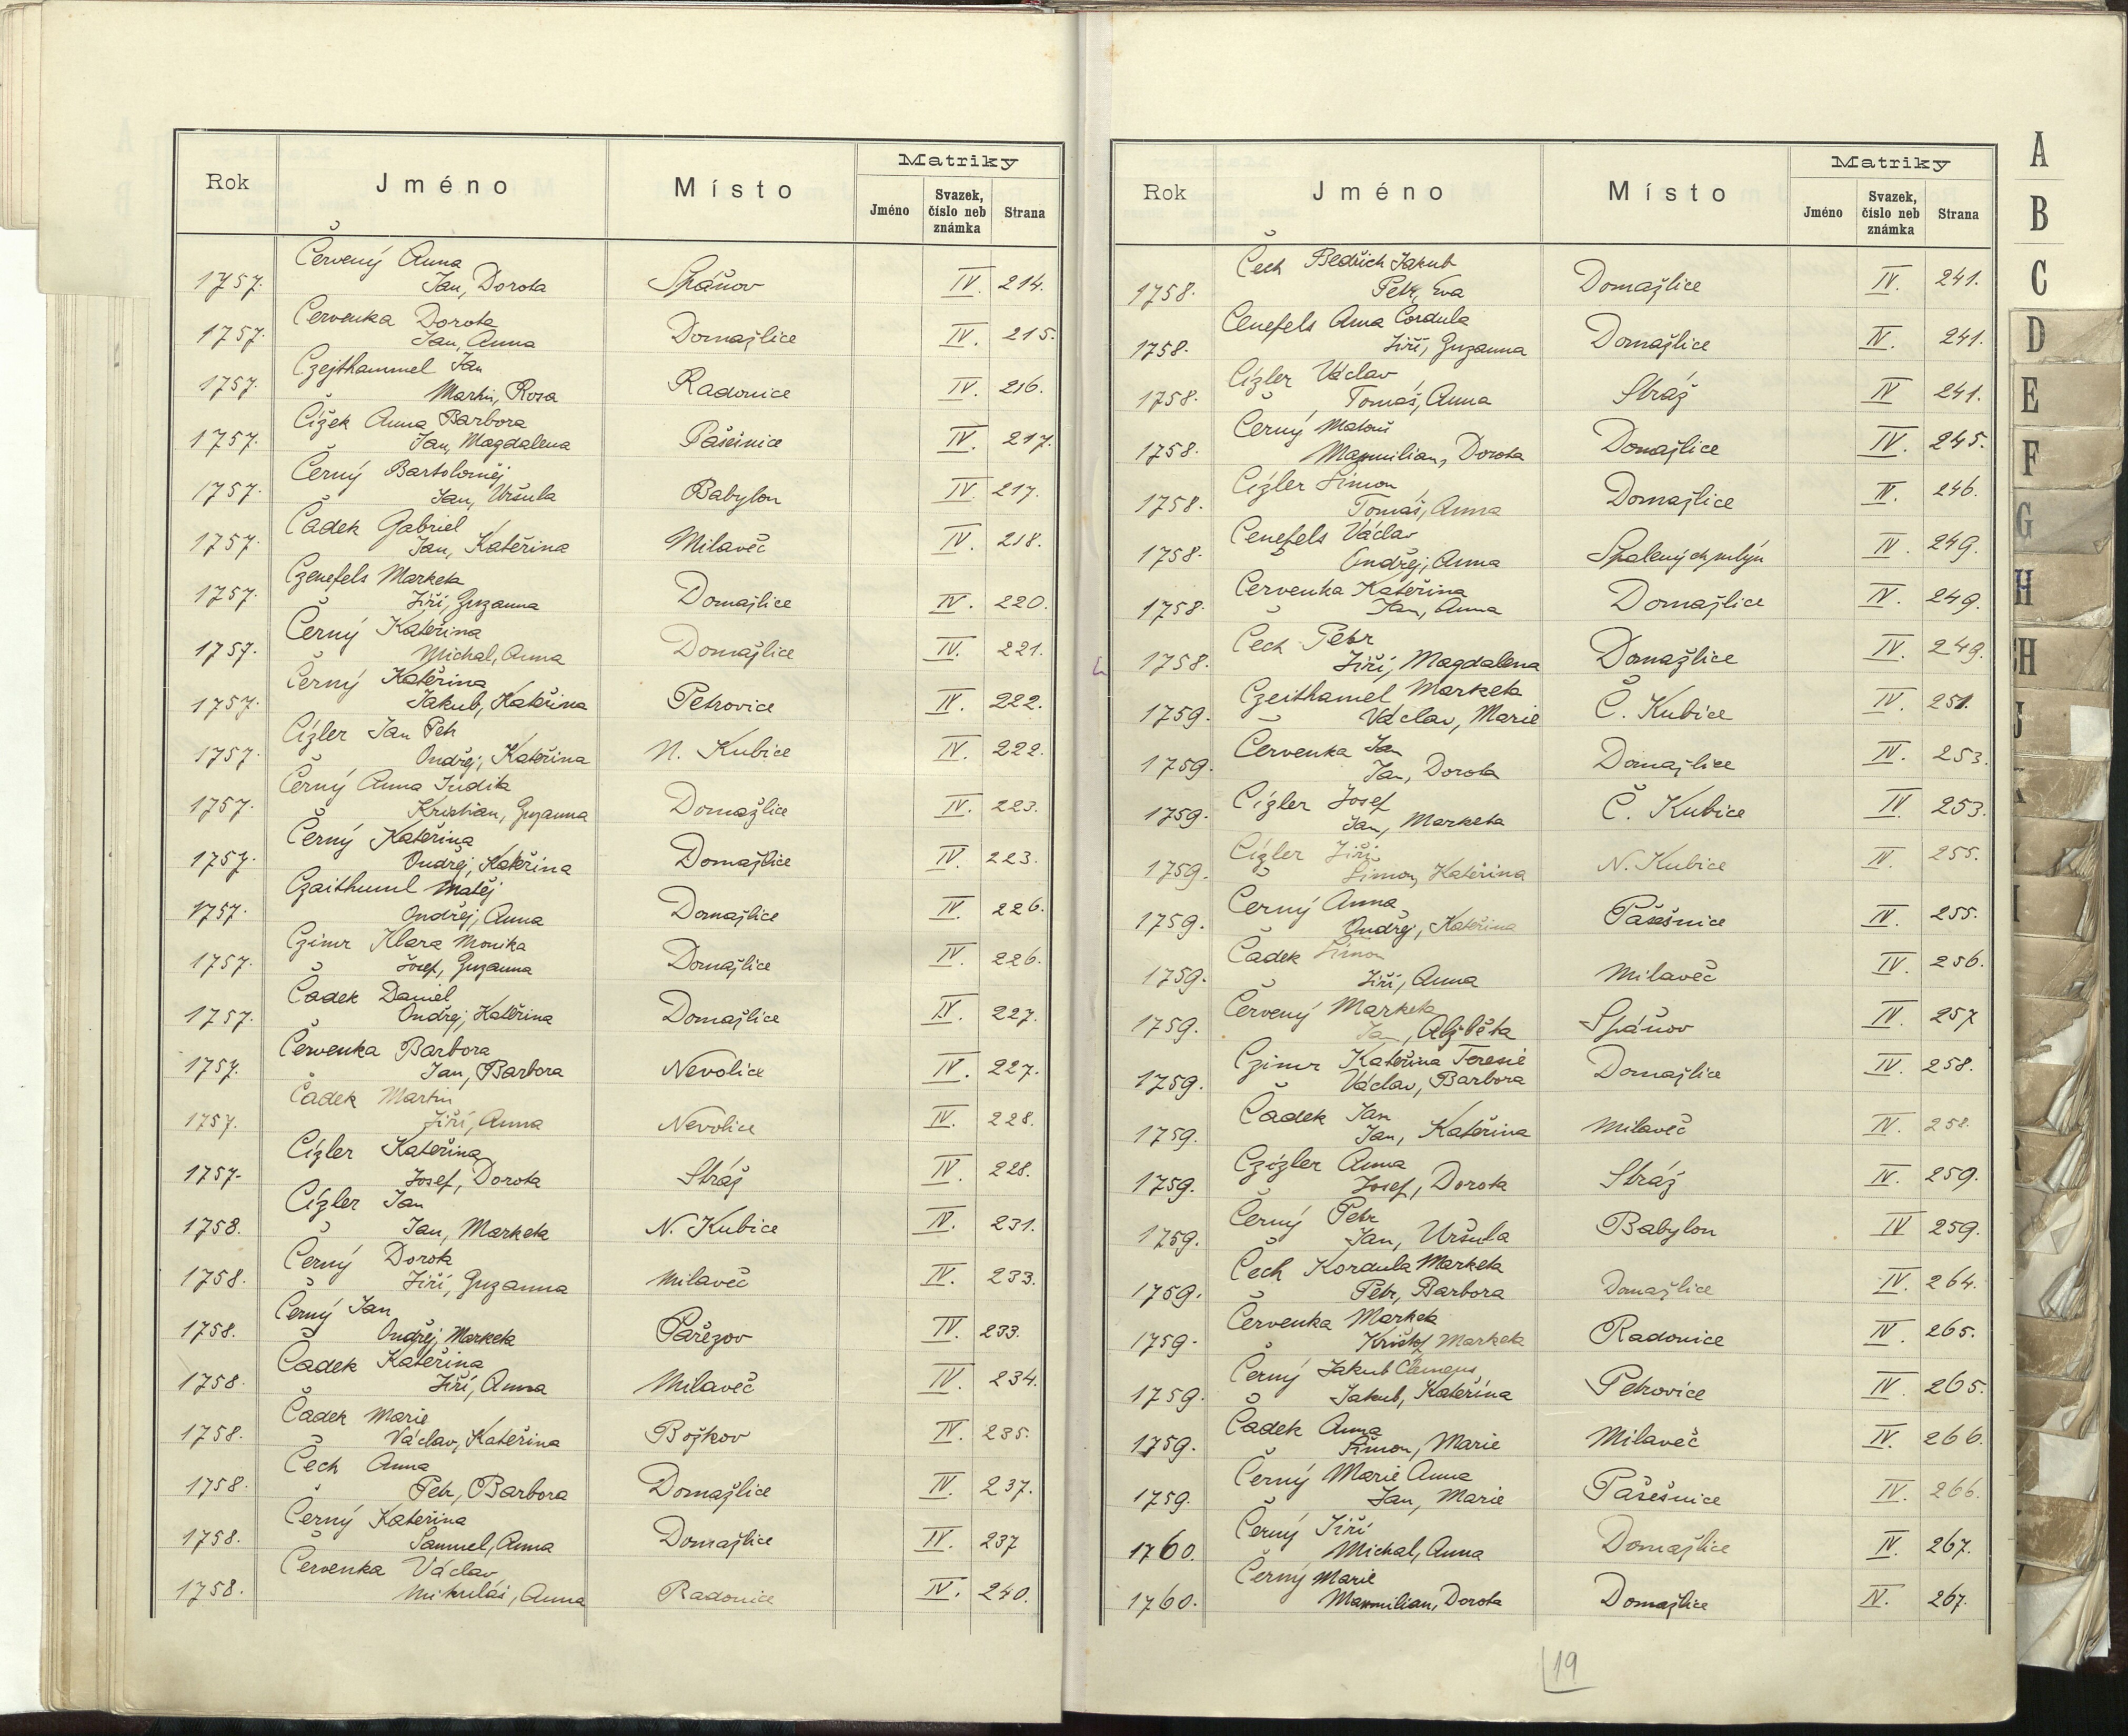 Rok Jméno Místo Matriky
Jméno Svazek, číslo neb známka Strana
Červený Anna
1757. Jan, Dorota Spáňov IV. 214.
Červenka Dorota
1757. Jan, Anna Domažlice IV. 215.
Czejthammel Jan
1757. Martin, Rosa Radonice IV. 216.
Čížek Anna Barbora
1757. Jan, Magdalena Pašešnice IV. 217.
Černý Bartoloměj
1757. Jan, Uršula Babylon IV. 217.
Čadek Gabriel
1757. Jan, Kateřina Milaveč IV. 218.
Czenefels Marketa
1757. Jiří, Zuzanna Domažlice IV. 220.
Černý Kateřina
1757. Michal, Anna Domažlice IV. 221.
Černý Kateřina
1757. Jakub, Kateřina Petrovice IV. 222.
Cízler Jan Petr
1757. Ondřej, Kateřina N. Kubice IV. 222.
Černý Anna Judita
1757. Kristian, Zuzanna Domažlice IV. 223.
Černý Kateřina
1757. Ondřej, Kateřina Domažlice IV. 223.
Czaithuml Matěj
1757. Ondřej, Anna Domažlice IV. 226.
Czimr Klara Monika
1757. Josef, Zuzanna Domažlice IV. 226.
Čadek Daniel
1757. Ondřej, Kateřina Domažlice IV. 227.
Červenka Barbora
1757. Jan, Barbora Nevolice IV. 227.
Čadek Martin
1757. Jiří, Anna Nevolice IV. 228.
Cízler Kateřina
1757. Josef, Dorota Stráž IV. 228.
Cízler Jan
1758. Jan, Marketa N. Kubice IV. 231.
Černý Dorota
1758. Jiří, Zuzanna Milaveč IV. 233.
Černý Jan
1758. Ondřej, Marketa Pařezov IV. 233.
Čadek Kateřina
1758. Jiří, Anna Milaveč IV. 234.
Čadek Marie
1758. Václav, Kateřina Božkov IV. 235.
Čech Anna
1758. Petr, Barbora Domažlice IV. 237.
Černý Kateřina
1758. Samuel, Anna Domažlice IV. 237
Červenka Václav
1758. Mikuláš, Anna Radonice IV. 240.
Rok Jméno Místo Matriky
Jméno Svazek, číslo neb známka Strana
Čech Bedřich Jakub
1758. Petr, Eva Domažlice IV. 241.
Cenefels Anna Cordula
1758. Jiří, Zuzanna Domažlice IV. 241.
Cízler Václav
1758. Tomáš, Anna Stráž IV 241.
Černý Matouš
1758. Maxmilian, Dorota Domažlice IV. 245.
Cízler Šimon
1758. Tomáš, Anna Domažlice IV. 246.
Cenefels Václav
1758. Ondřej, Anna Spalených mlýn IV. 249.
Červenka Kateřina
1758. Jan, Anna Domažlice IV. 249.
Čech Petr
1758. Jiří, Magdalena Domažlice IV. 249.
Czeithamel Marketa
1759. Václav, Marie Č. Kubice IV. 251.
Červenka Jan
1759. Jan, Dorota Domažlice IV. 253.
Cízler Josef
1759. Jan, Marketa Č. Kubice IV 253.
Cízler Jiří
1759. Šimon, Kateřina N. Kubice IV. 255.
Černý Anna
1759. Ondřej, Kateřina Pašešnice IV. 255.
Čadek Šimon
1759. Jiří, Anna Milaveč IV. 256.
Červený Marketa
1759. Jan, Alžběta Spáňov IV. 257
Czimr Kateřina Teresie
1759. Václav, Barbora Domažlice IV. 258.
Čadek Jan
1759. Jan, Kateřina Milaveč IV. 258.
Czízler Anna
1759. Josef, Dorota Stráž IV. 259.
Černý Petr
1759. Jan, Uršula Babylon IV 259.
Čech Kordula Marketa
1759. Petr, Barbora Domažlice IV. 264.
Červenka Marketa
1759. Krištof Marketa Radonice IV. 265.
Černý Jakub Clemens
1759. Jakub, Kateřina Petrovice IV. 265.
Čadek Anna
1759. Šimon, Marie Milaveč IV. 266.
Černý Marie Anna
1759. Jan, Marie Pašešnice IV. 266.
Černý Jiří
1760. Michal, Anna Domažlice IV. 267.
Černý Marie
1760. Maxmilian, Dorota Domažlice IV. 267.
19
A
B
C
D
E
F
G
H
CH